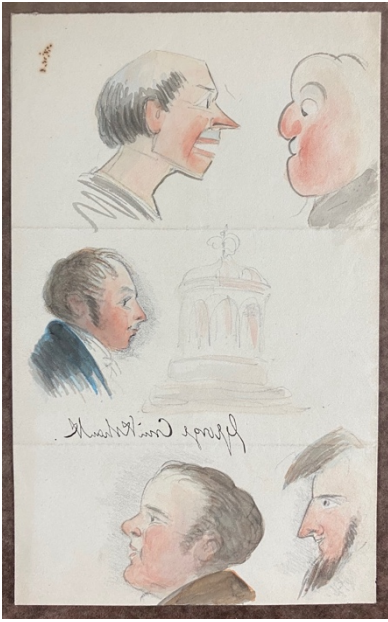 George Cruikshank.